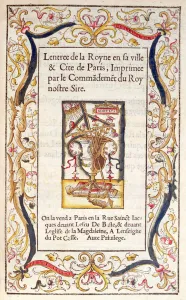 Lentree de la Royne en sa ville
& Cite de Paris, Imprimee
par le Commãdemẽt du Roy
nostre Sire.
On la vend a Paris en la Rue Sainct Iac-
ques deuant Lescu De Basle, & deuant
Leglise de la Magdaleine, A Lenseigne
du Pot Casse. Auec Priuilege.